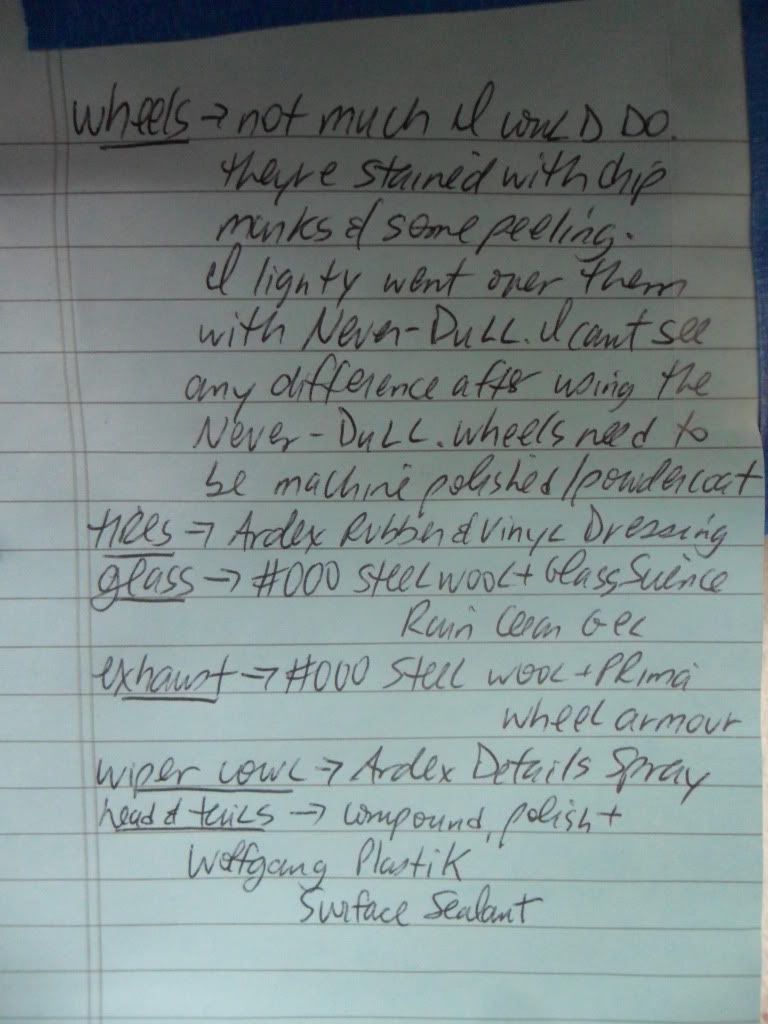 wheels → not much I could DO.
they're stained with chip
marks & some peeling.
I lighty went over them
with Never-Dull. I cant see
any difference after using the
Never-Dull. wheels need to
be machine polished/powdercoat
tires → Ardex Rubber & Vinyl Dressing
glass → #000 steel wool + Glass Science
Rain Clean Gel
exhaust → #000 steel wool + Prima
wheel armour
wiper cowl → Ardex Details Spray
head & tails → compound, polish +
Wolfgang Plastik
Surface Sealant